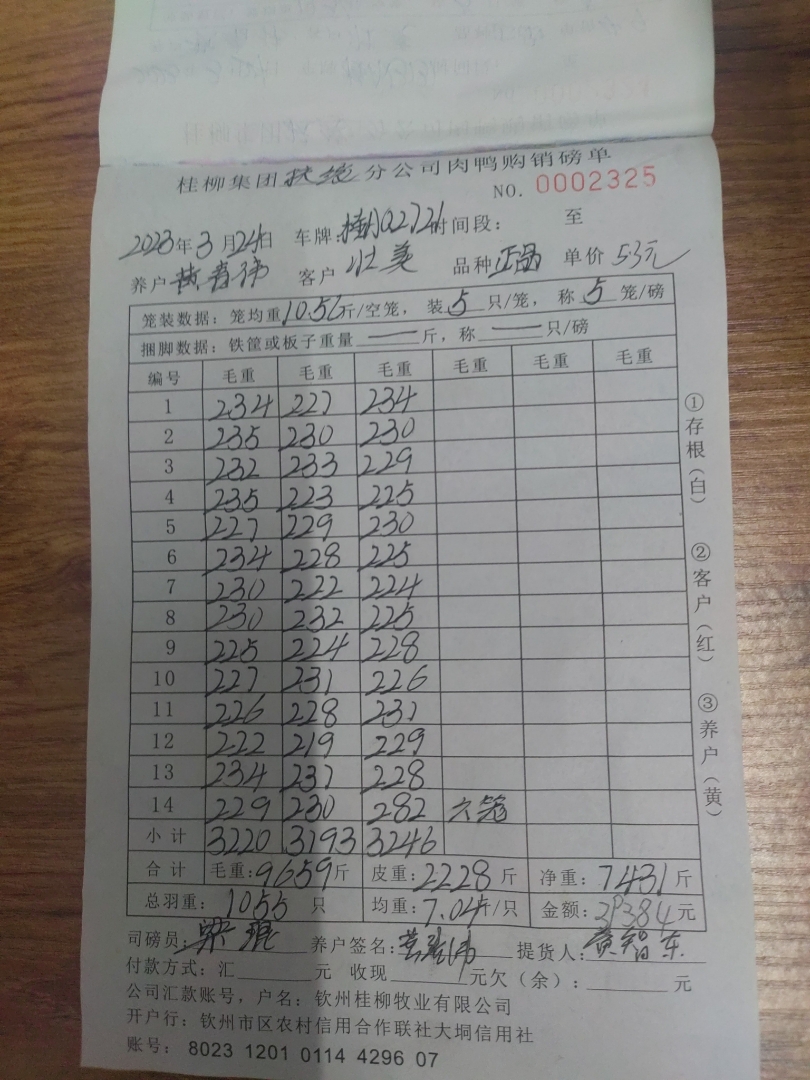 桂柳集团扶绥分公司肉鸭购销磅单
NO. 0002325
2023年3月24日 车牌:桂A02721 时间段: 至
养户 黄春伟 客户 壮美 品种 正品 单价 5.3元
笼装数据:笼均重10.56斤/空笼,装5只/笼,称5笼/磅
捆脚数据:铁筐或板子重量——斤,称——只/磅
编号 毛重 毛重 毛重 毛重 毛重 毛重
1 234 227 234
2 235 230 230
3 232 233 229
4 235 223 225
5 227 229 230
6 234 228 225
7 230 222 224
8 230 232 225
9 225 224 228
10 227 231 226
11 226 228 231
12 222 219 229
13 234 237 228
14 229 230 282 六笼
小计 3220 3193 3246
合计 毛重:9659斤 皮重:2228斤 净重:7431斤
总羽重:1055只 均重:7.04斤/只 金额:39384元
司磅员:梁琨 养户签名: 提货人:黄智东
付款方式:汇______元 收现______元欠(余):______元
公司汇款账号,户名:钦州桂柳牧业有限公司
开户行:钦州市区农村信用合作联社大垌信用社
账号:8023 1201 0114 4296 07
①存根(白) ②客户(红) ③养户(黄)